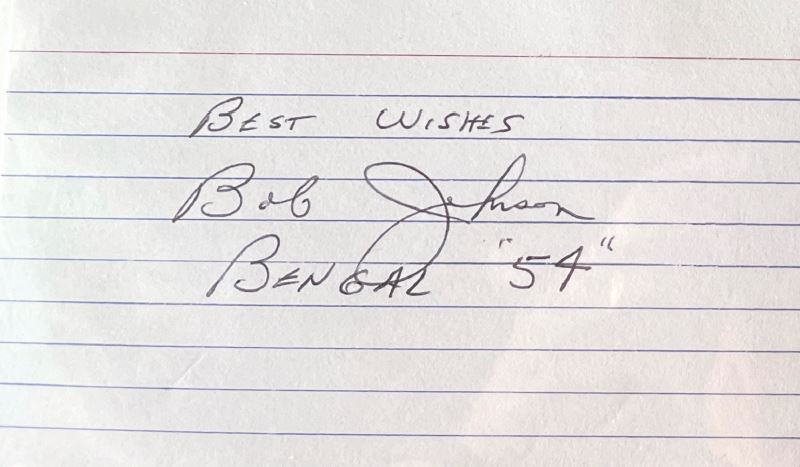 BEST WISHES
Bob Johnson
BENGAL "54"